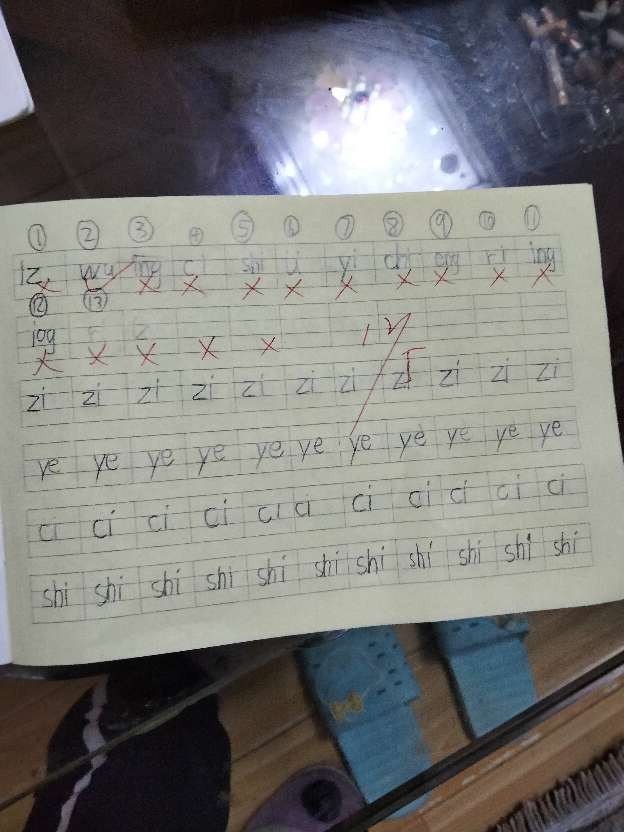 ① ② ③ ④ ⑤ ⑥ ⑦ ⑧ ⑨ ⑩ ⑪
wu ing ci shi ü yi chi eng ri ing
⑫ ⑬
zi zi zi zi zi zi zi zi zi zi zi
ye ye ye ye ye ye ye ye ye ye ye
ci ci ci ci ci ci ci ci ci ci ci
shi shi shi shi shi shi shi shi shi shi shi